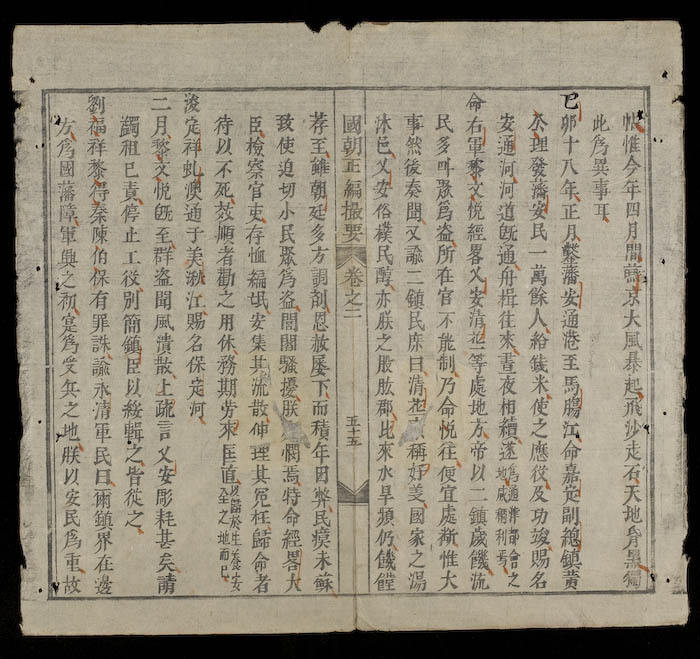 惟今年四月間燕京大風暴起飛沙走石天地昏黑獨
此爲異事耳
己卯十八年正月鑿藩安通港至馬膓江命嘉定副總鎮黃
公理發藩安民一萬餘人給錢米使之應役及功竣賜名
安通河河道旣通舟楫徃來晝夜相續遂爲通津都會之地咸稱利焉
命右軍黎文悅經畧乂安清花等處地方帝以二鎮歲饑流
民多叫聚爲盗所在官不能制乃命悅徃便宜處断惟大
事然後奏聞又諭二鎮民庶曰清花稱好義國家之湯
沐邑乂安俗樸民醇亦朕之股肱郡比來水旱頻仍饑饉
國朝正編撮要 卷之二 五十五
荐至雖朝廷多方調劑恩赦屢下而積年因弊民瘼未蘇
致使迫切小民聚爲盗閭閻騷擾朕憫焉特命經畧大
臣檢察官吏存恤編氓安集其流散伸理其冤枉歸命者
待以不死效順者勸之用休務期勞來匡直以歸於生養安全之地而已
浚定祥虬澳通于美湫江賜名保定河
二月黎文悅旣至群盗聞風潰散上疏言乂安彫耗甚矣請
蠲租已責停止工役別簡鎮臣以綏輯之皆從之
劉福祥黎得秦陳伯保有罪誅諭永清軍民曰爾鎮界在邊
方爲國藩障軍興之初寔爲受兵之地朕以安民爲重故